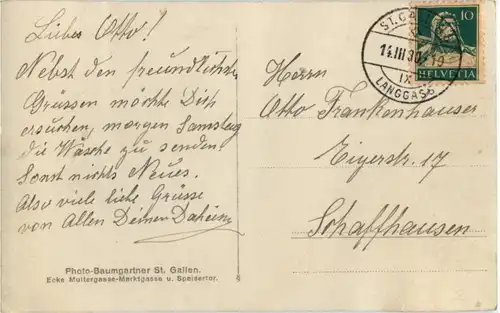 Liebes Otto!
Nebst den freundlichsten
Grüssen möchte Dich
ersuchen, morgen Samstag
die Wäsche zu senden.
Sonst nichts Neues.
Also viele liebe Grüsse
von Allen Deinen Daheim
Photo-Baumgartner St. Gallen.
Ecke Multergasse-Marktgasse u. Speisertor.
ST. GA
14.III 30-19
IX
LANGGASS
10
HELVETIA
Herrn
Otto Frankenhauser
Eigerstr. 17
Schaffhausen